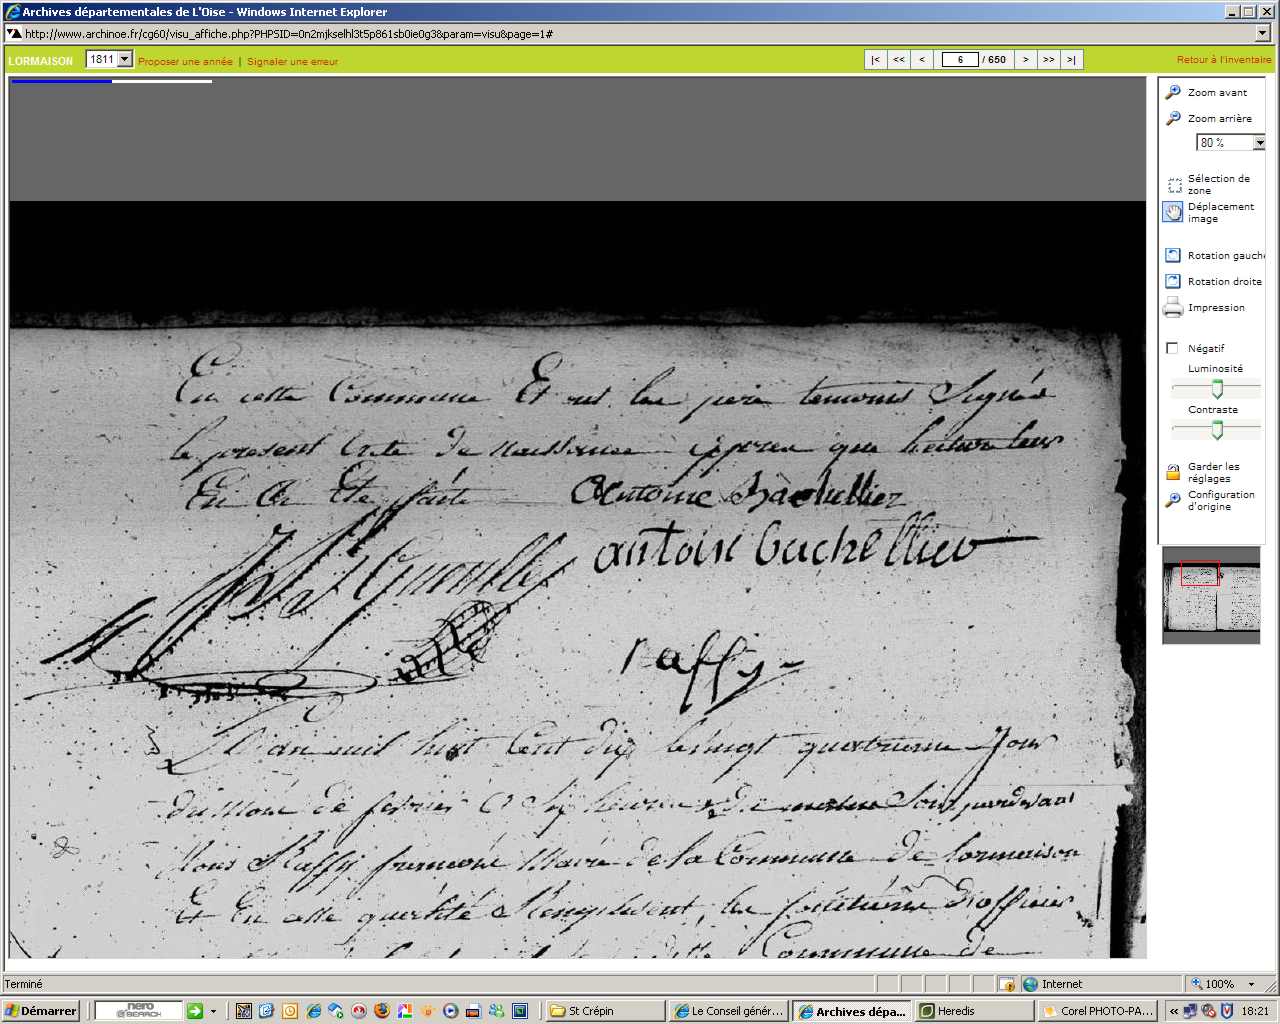 Archives départementales de L'Oise - Windows Internet Explorer
http://www.archinoe.fr/cg60/visu_affiche.php?PHPSID=0n2mjkselhl3t5p861sb0ie0g3&param=visu&page=1#
LORMAISON 1811 Proposer une année | Signaler une erreur |< << < 6 / 650 > >> >| Retour à l'inventaire
Zoom avant
Zoom arrière
80 %
Sélection de
zone
Déplacement
image
Rotation gauche
Rotation droite
Impression
Négatif
Luminosité
Contraste
Garder les
réglages
Configuration
d'origine
En cette Commune Et ont les père temoins Signés
le present Acte de naissance après que lecture leur
En a Ete faite Antoine Bachellier
antoin bachellier
raffy
L'an mil huit Cent dix le vingt quatrieme Jour
du mois de fevrier a six heures du soir pardevant
Nous Raffy Maire de la Commune de Lormaison
Et En cette qualité Remplissent les fonctions D'officier
Commune de
Terminé Internet 100%
Démarrer nero SEARCH St Crépin Le Conseil génér... Archives dépa... Heredis Corel PHOTO-PA... « 18:21